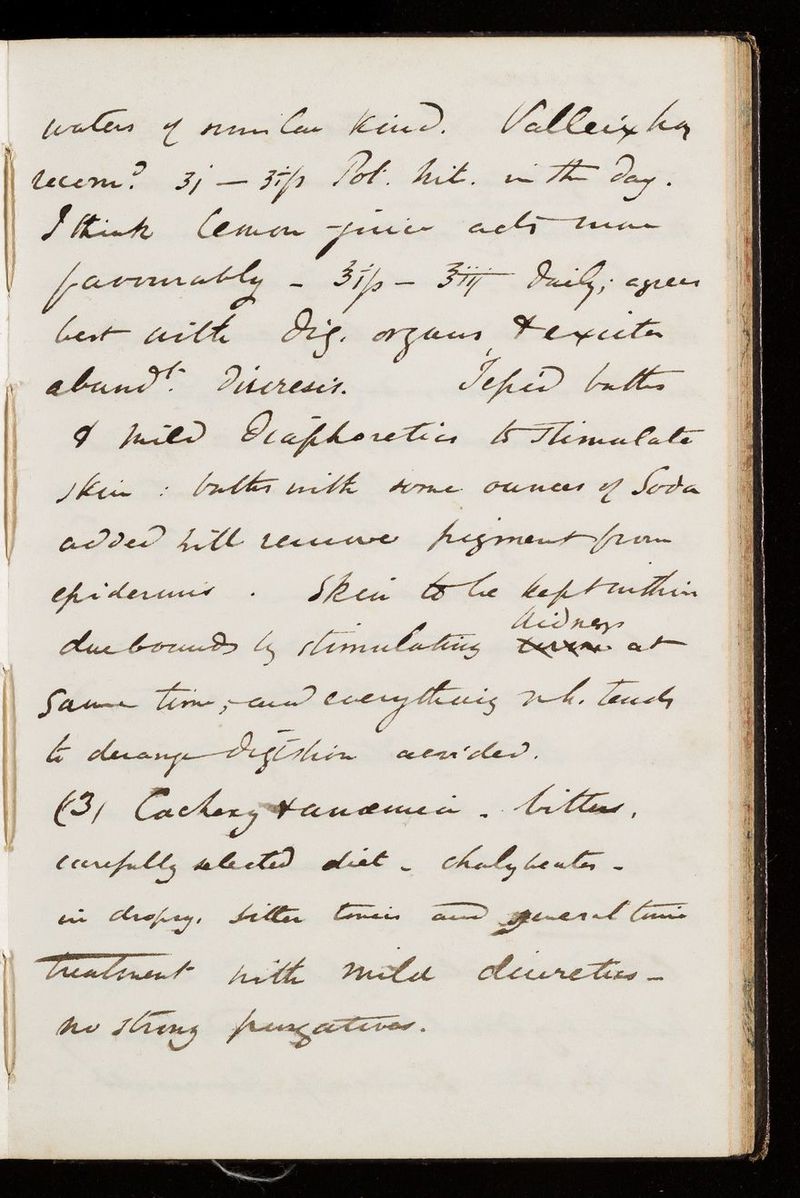 waters of similar kind. Valleix has
recom.d ʒj — ʒiß Pot. Nit. in the day.
I think lemon-juice acts more
favourably - ℥iß — ℥iij daily; agrees
best with dig. organs, & excites
abundt. diuresis. Tepid baths
& mild diaphoretics to stimulate
skin: baths with some ounces of Soda
added will remove pigment from
epidermis. Skin to be kept within
due bounds by stimulating kidneys at
same time; and everything wh. tends
to derange digestion avoided.
(3) Cachexy & anæmia. bitters,
carefully selected diet - chalybeates -
in dropsy. bitter tonics and general tonic
treatment with mild diuretics -
no strong purgatives.